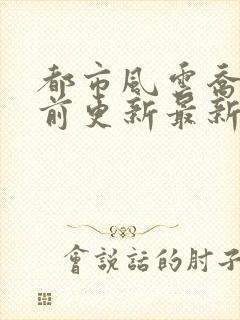 都市風雲喬
前更新最新
會說話的肘子